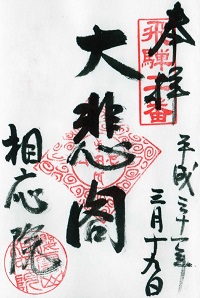 奉拝
飛騨二番
大悲閣
平成三十一年
三月十九日
相応院